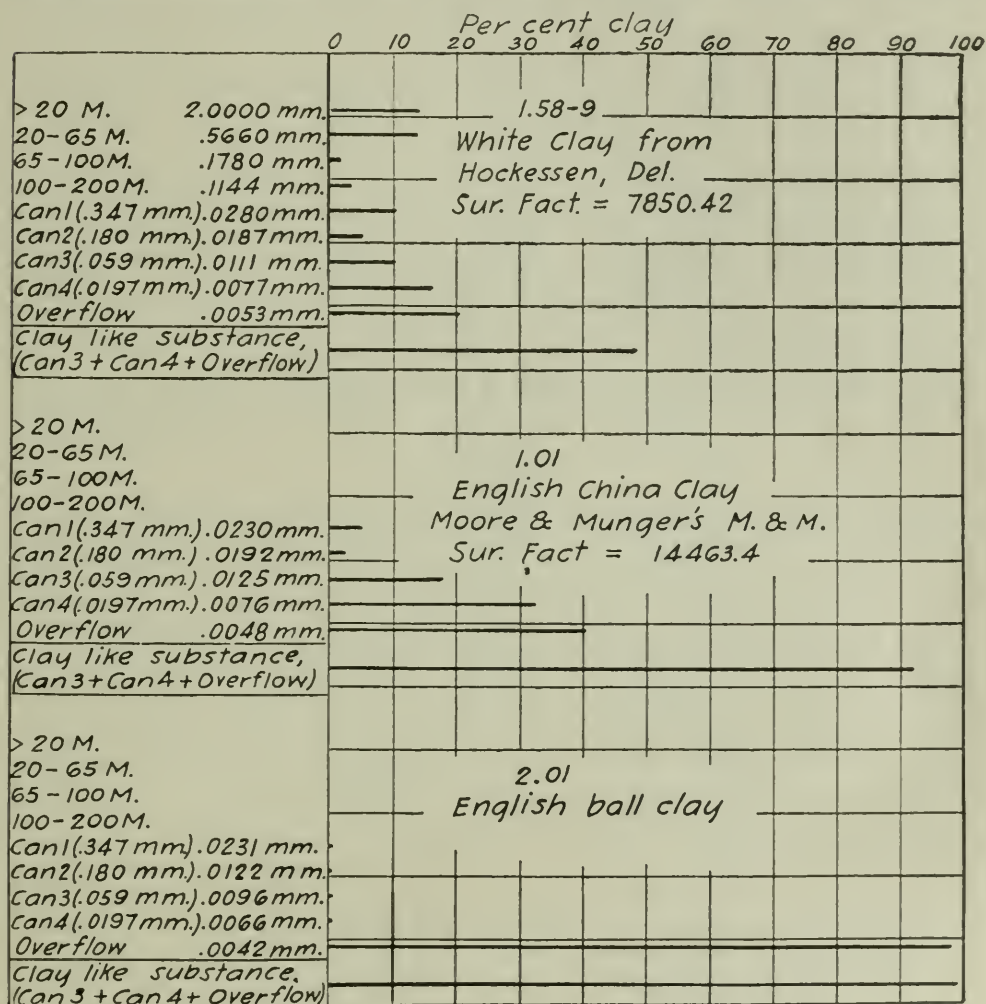 Per cent clay
0 10 20 30 40 50 60 70 80 90 100
> 20 M. 2.0000 mm.
20-65 M. .5660 mm.
65-100M. .1780 mm.
100-200M. .1144 mm.
Can1(.347mm.).0280mm.
Can2(.180 mm.).0187mm.
Can3(.059 mm.).0111 mm.
Can4(.0197mm.).0077mm.
Overflow .0053mm.
Clay like substance,
(Can3+Can4+Overflow)
1.58-9
White Clay from
Hockessen, Del.
Sur. Fact. = 7850.42
> 20 M.
20-65M.
65-100M.
100-200M.
Can1(.347mm.).0230mm.
Can2(.180 mm.).0192mm.
Can3(.059mm.).0125mm.
Can4(.0197mm.).0076mm.
Overflow .0048mm.
Clay like substance,
(Can3+Can4+Overflow)
1.01
English China Clay
Moore & Munger's M. & M.
Sur. Fact = 14463.4
> 20 M.
20-65 M.
65-100M.
100-200M.
Can1(.347mm).0231 mm.
Can2(.180 mm.).0122 mm.
Can3(.059 mm.).0096mm.
Can4(.0197mm.).0066mm.
Overflow .0042mm.
Clay like substance,
(Can3+Can4+Overflow)
2.01
English ball clay